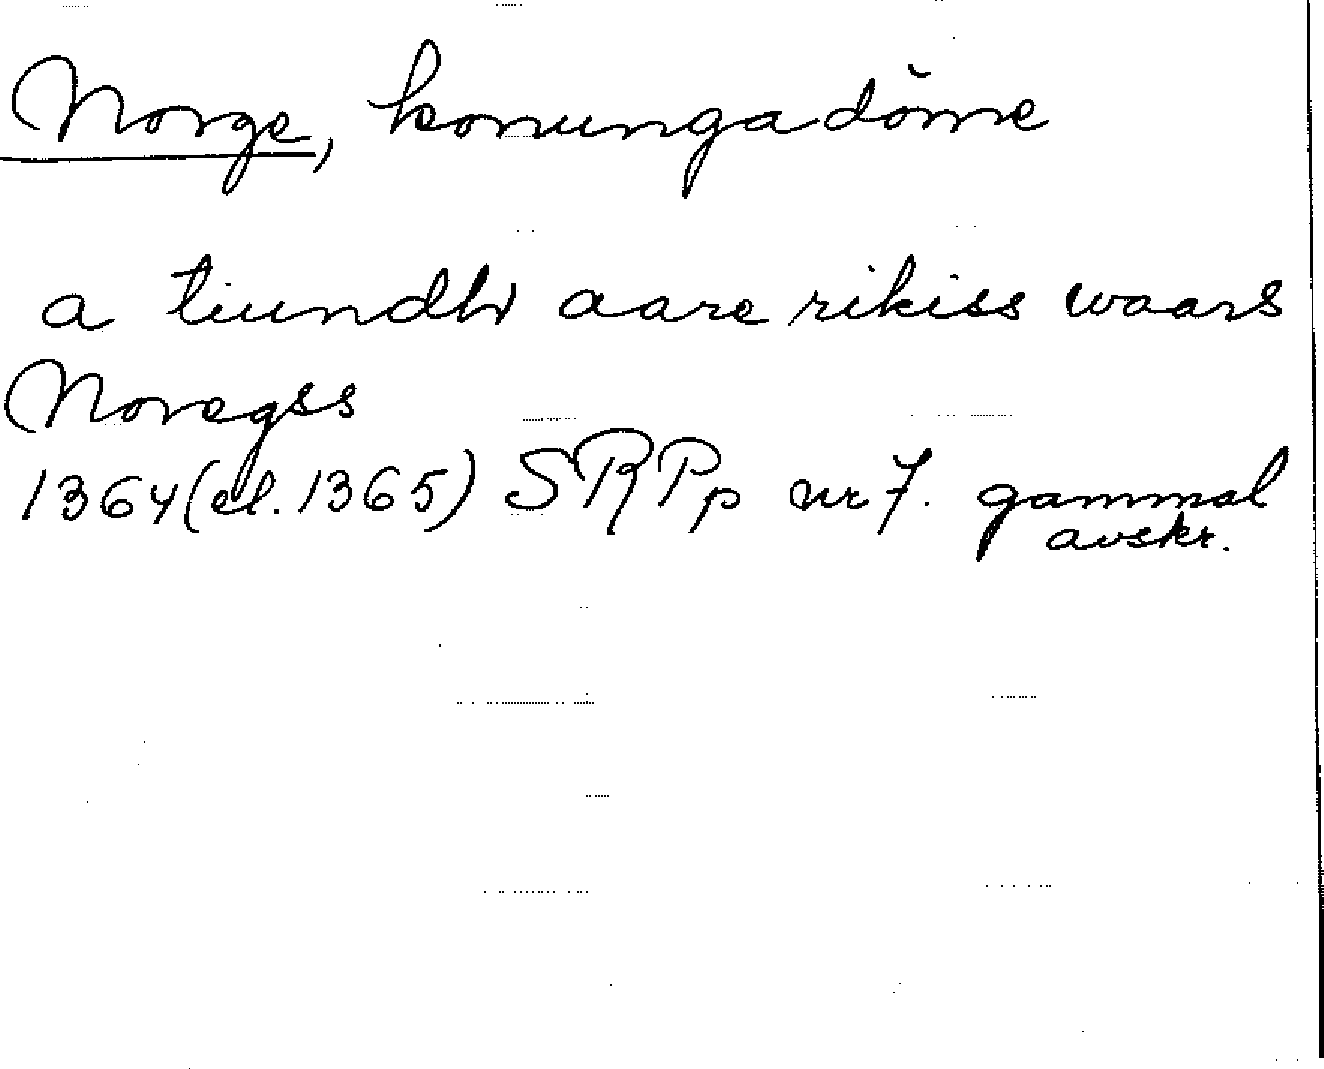 Norge, konungadöme
a tiundh aare rikiss waars
Noregss
1364 (el. 1365) SRPp nr 7. gammal
avskr.